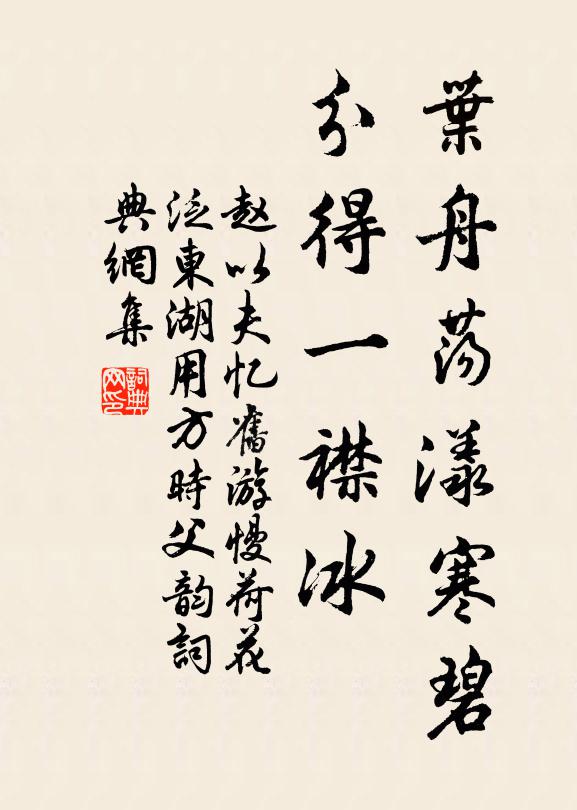 葉舟荡漾寒碧
分得一襟冰
赵以夫忆舊游慢荷花
泛東湖用方時父韵詞
典網集
詞典网印